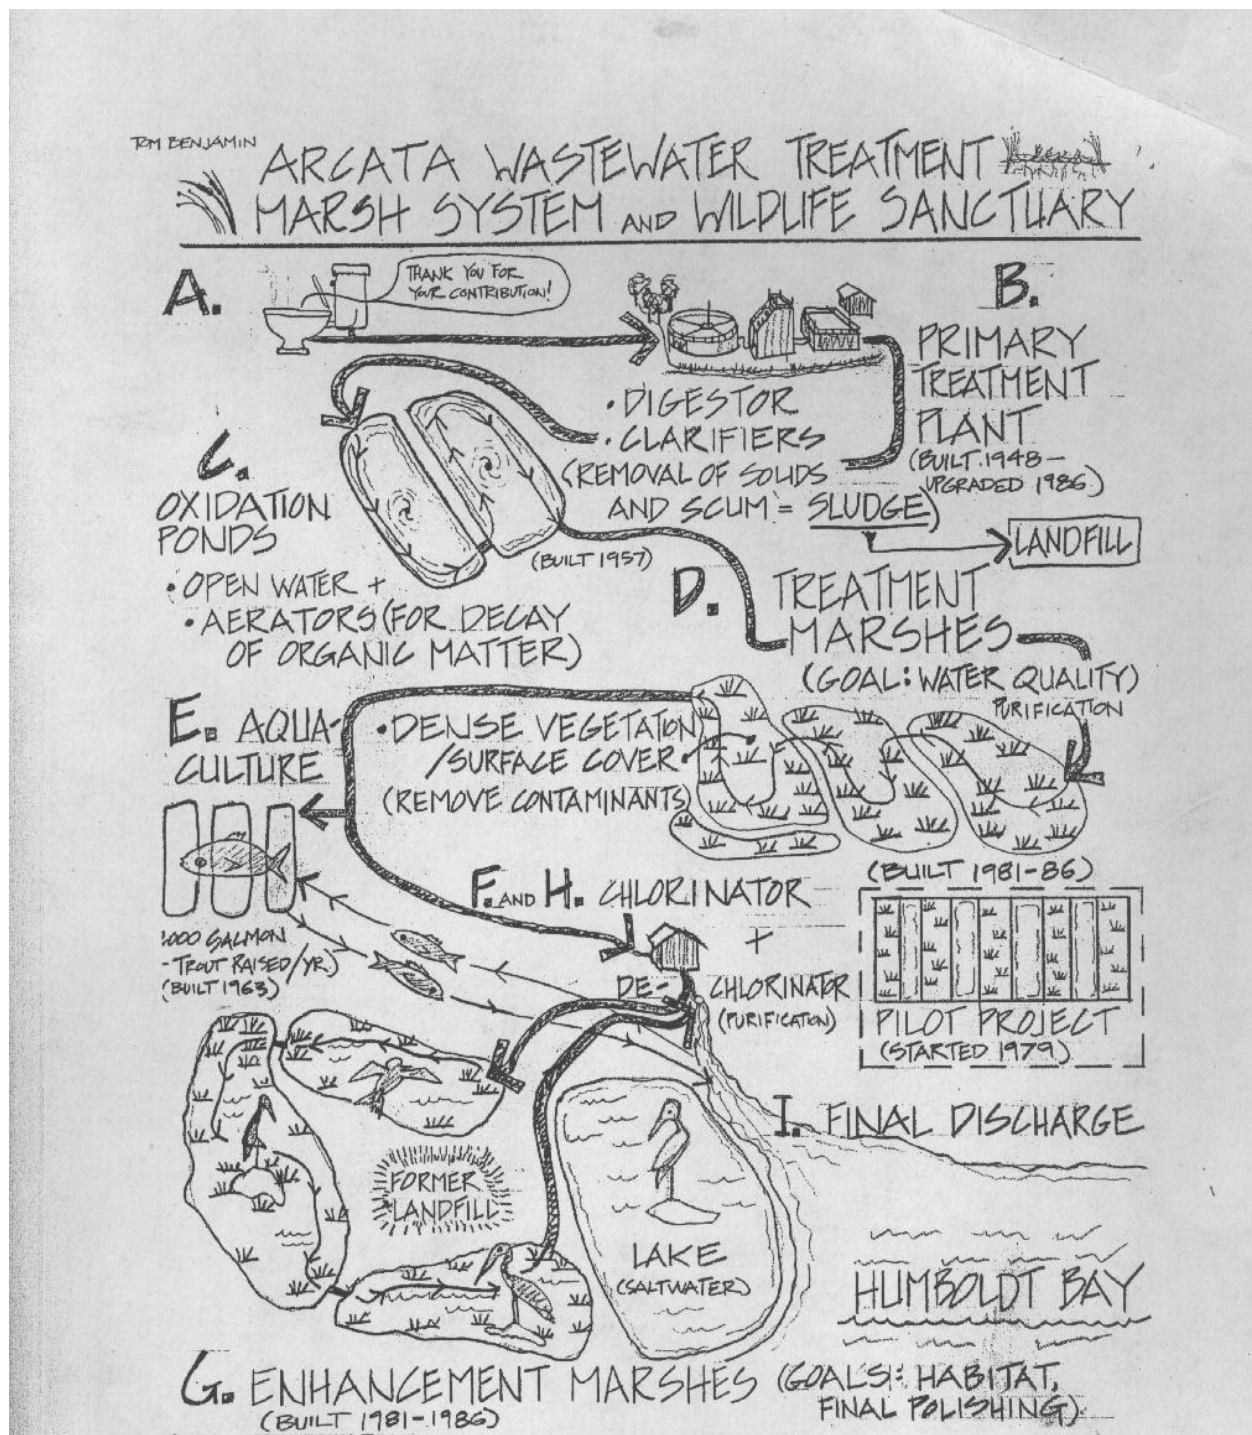 TOM BENJAMIN
ARCATA WASTEWATER TREATMENT
MARSH SYSTEM AND WILDLIFE SANCTUARY
A.
THANK YOU FOR
YOUR CONTRIBUTION!
B.
PRIMARY
TREATMENT
PLANT
(BUILT 1948-
UPGRADED 1986)
• DIGESTOR
• CLARIFIERS
(REMOVAL OF SOLIDS
AND SCUM = SLUDGE)
LANDFILL
C.
OXIDATION
PONDS
(BUILT 1957)
• OPEN WATER +
• AERATORS (FOR DECAY
OF ORGANIC MATTER)
D. TREATMENT
MARSHES
(GOAL: WATER QUALITY)
PURIFICATION
• DENSE VEGETATION
/SURFACE COVER •
(REMOVE CONTAMINANTS)
(BUILT 1981-86)
E. AQUA-
CULTURE
000 SALMON
- TROUT RAISED/YR.)
(BUILT 1963)
F. AND H. CHLORINATOR
+
DE- CHLORINATOR
(PURIFICATION)
PILOT PROJECT
(STARTED 1979)
I. FINAL DISCHARGE
FORMER
LANDFILL
LAKE
(SALTWATER)
HUMBOLDT BAY
G. ENHANCEMENT MARSHES (GOALS: HABITAT,
FINAL POLISHING)
(BUILT 1981-1986)